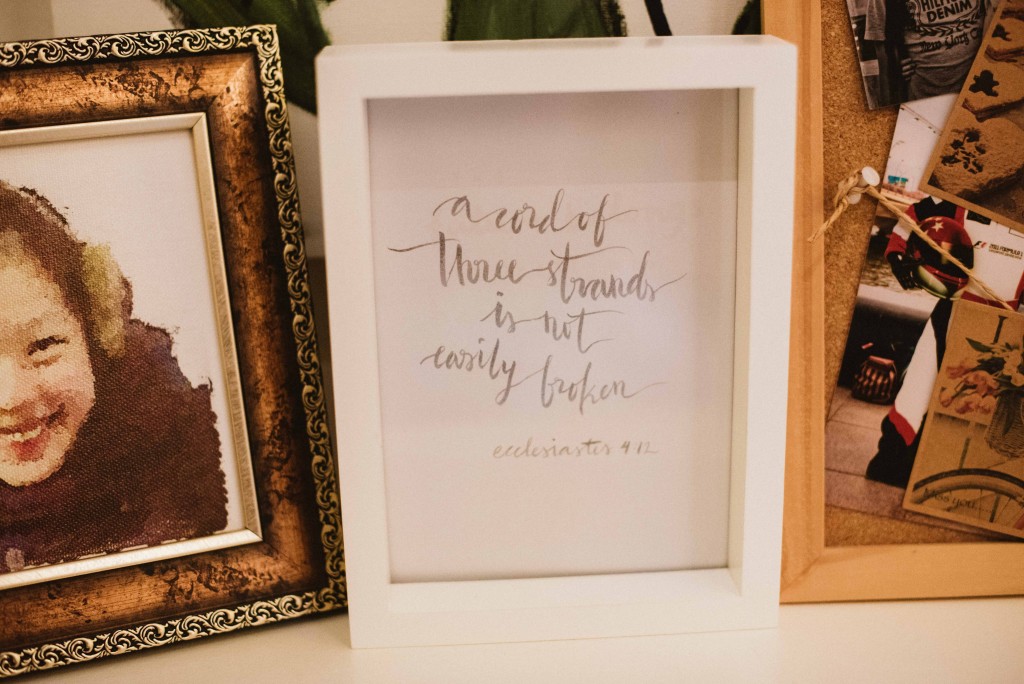 a cord of
three strands
is not
easily broken
ecclesiastes 4:12
HILFIGER
DENIM
miss you